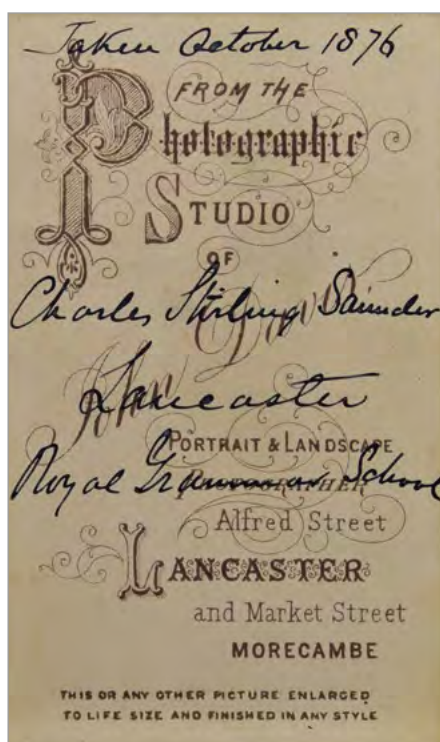 Taken October 1876
FROM THE
Photographic
STUDIO
OF
Charles Stirling Saunder
Lancaster
PORTRAIT & LANDSCAPE
Royal Grammar School
PHOTOGRAPHER
Alfred Street
LANCASTER
and Market Street
MORECAMBE
THIS OR ANY OTHER PICTURE ENLARGED
TO LIFE SIZE AND FINISHED IN ANY STYLE